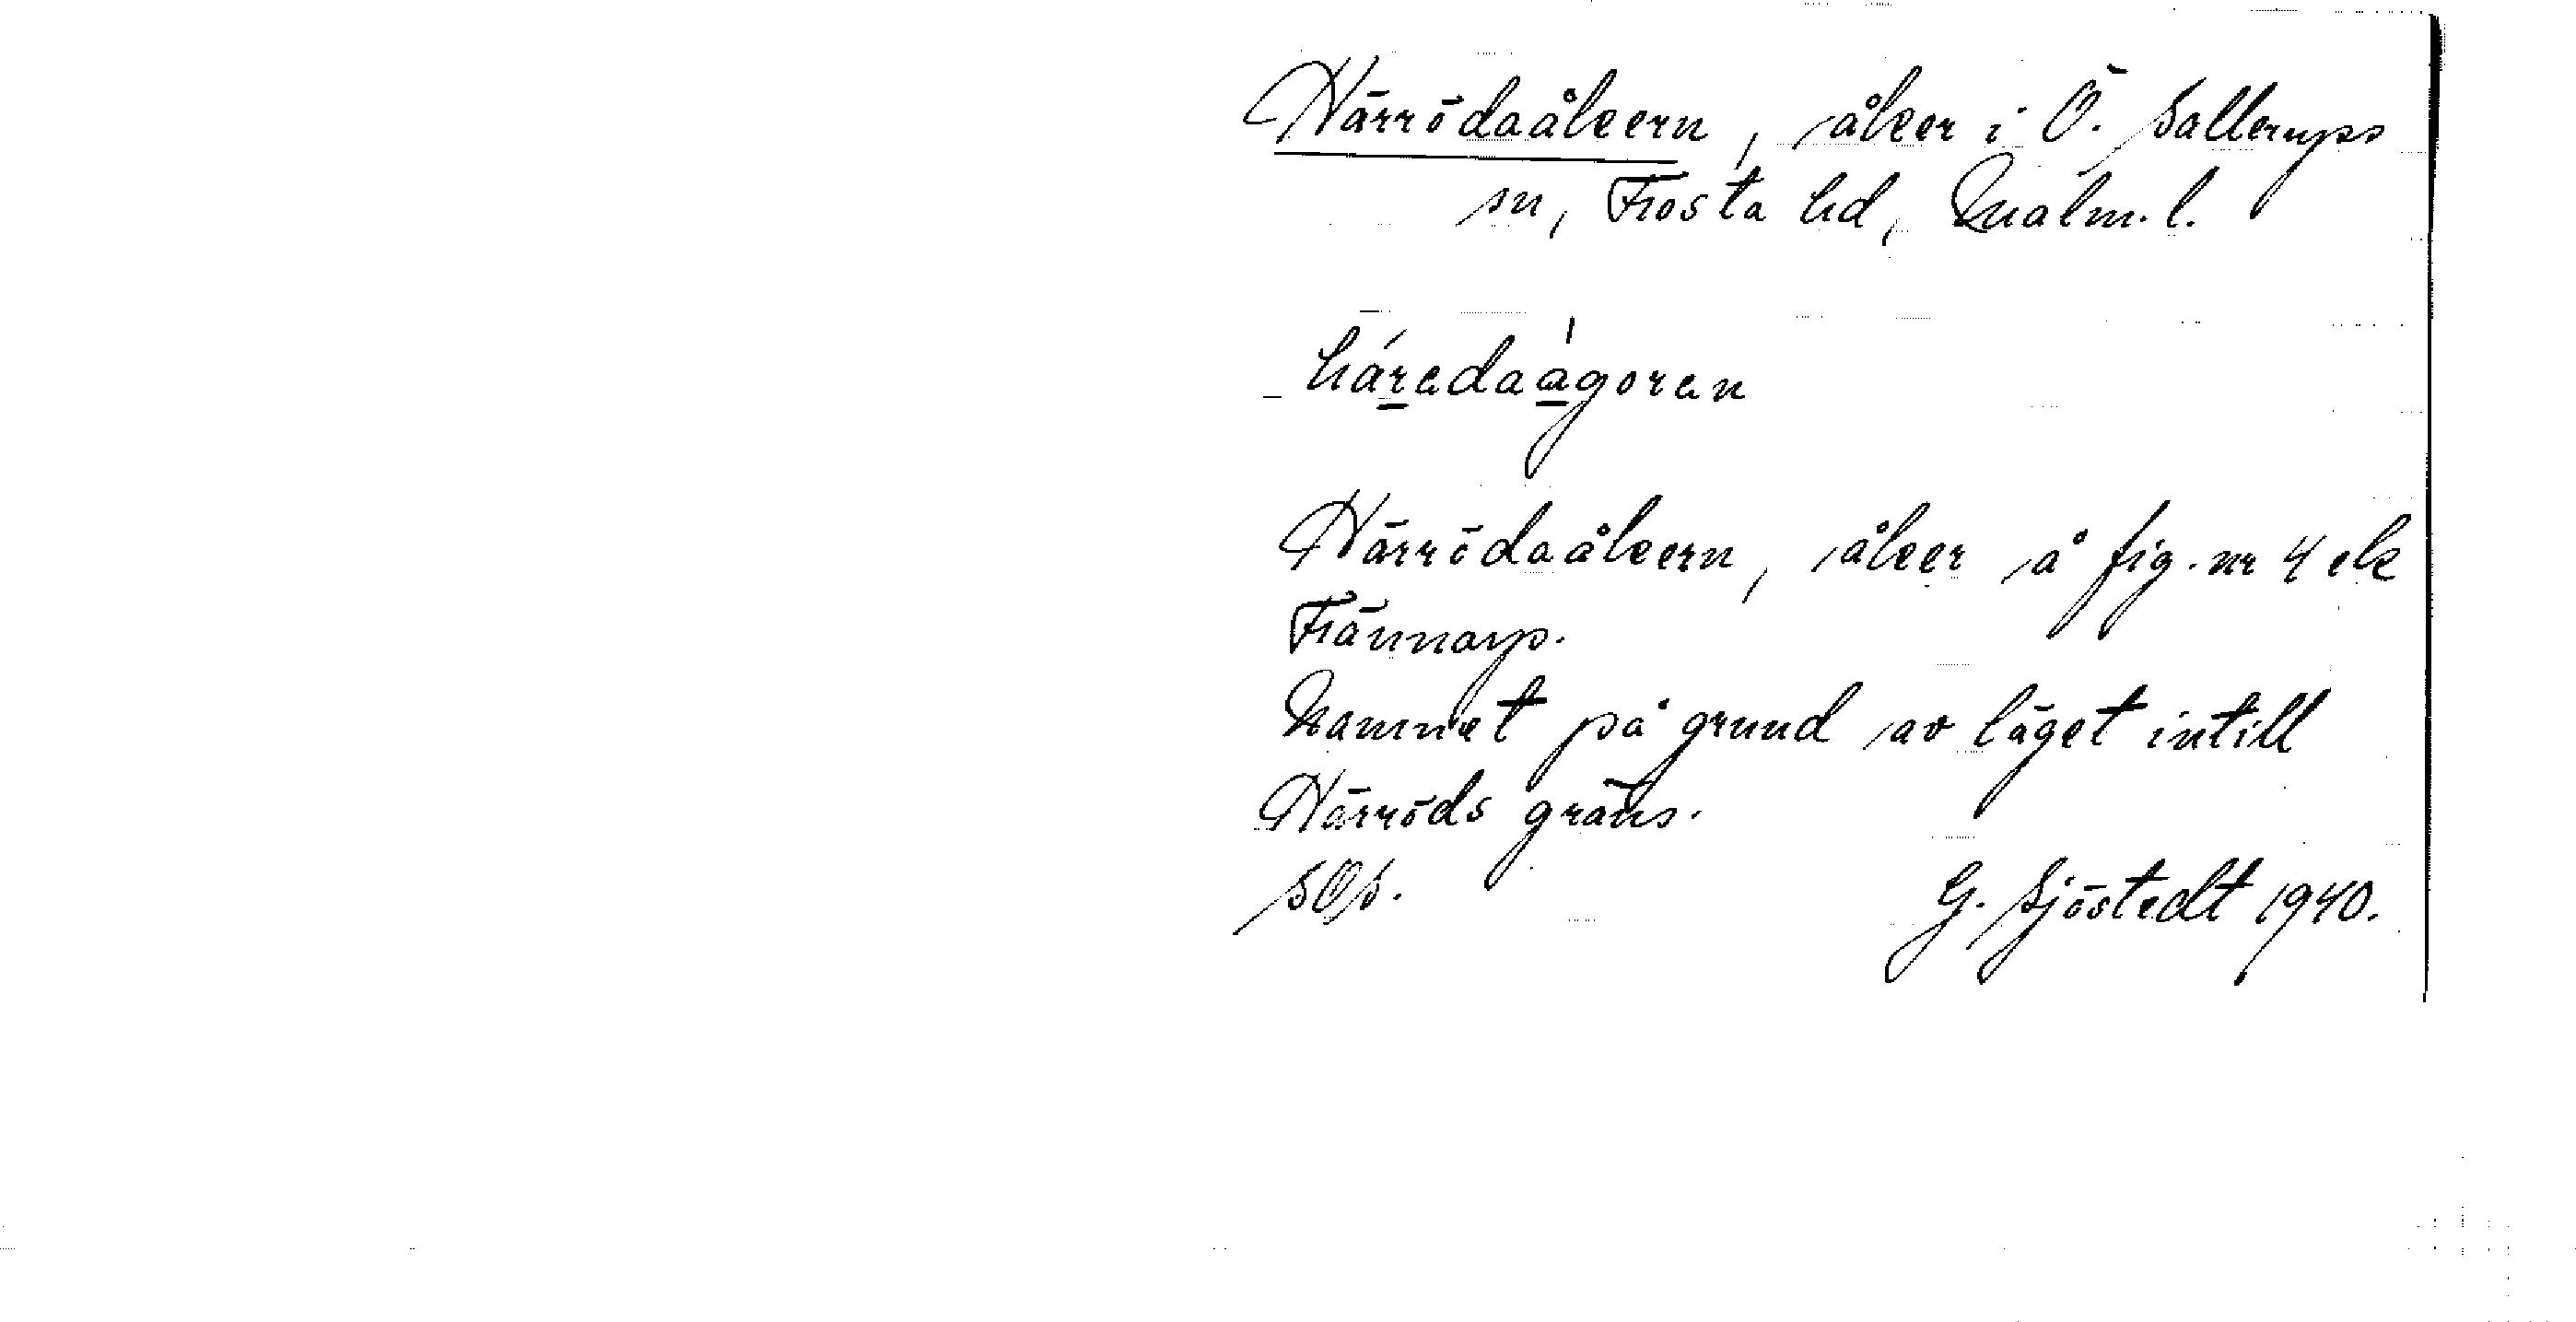 Härrödaåkern, åker i Ö. Sallerups
sn, Frosta hd, Malm. l.
háredaågoren
Härrödaåkern, åker å fig. nr 4 ek
Frännarp.
Namnet på grund av läget intill
Härröds gräns.
SOS.
G. Sjöstedt 1940.